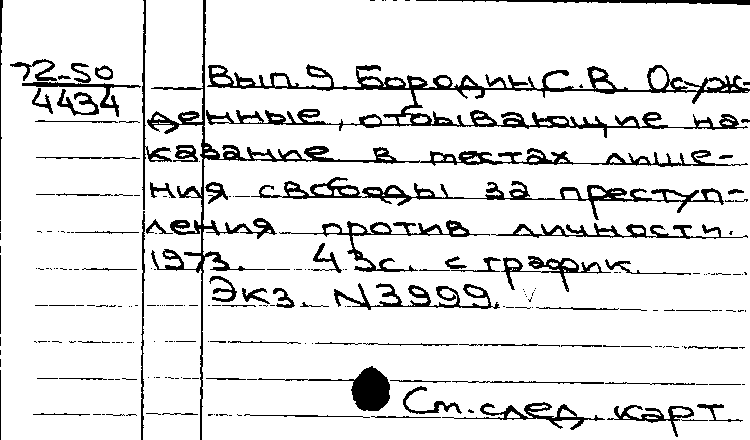 72-50
4434
Вып. 9. Бородин, С.В. Осуж-
денные, отбывающие на-
казание в местах лише-
ния свободы за преступ-
ления против личности.
1973. 43с. с график.
Экз. N3999.
См. след. карт.